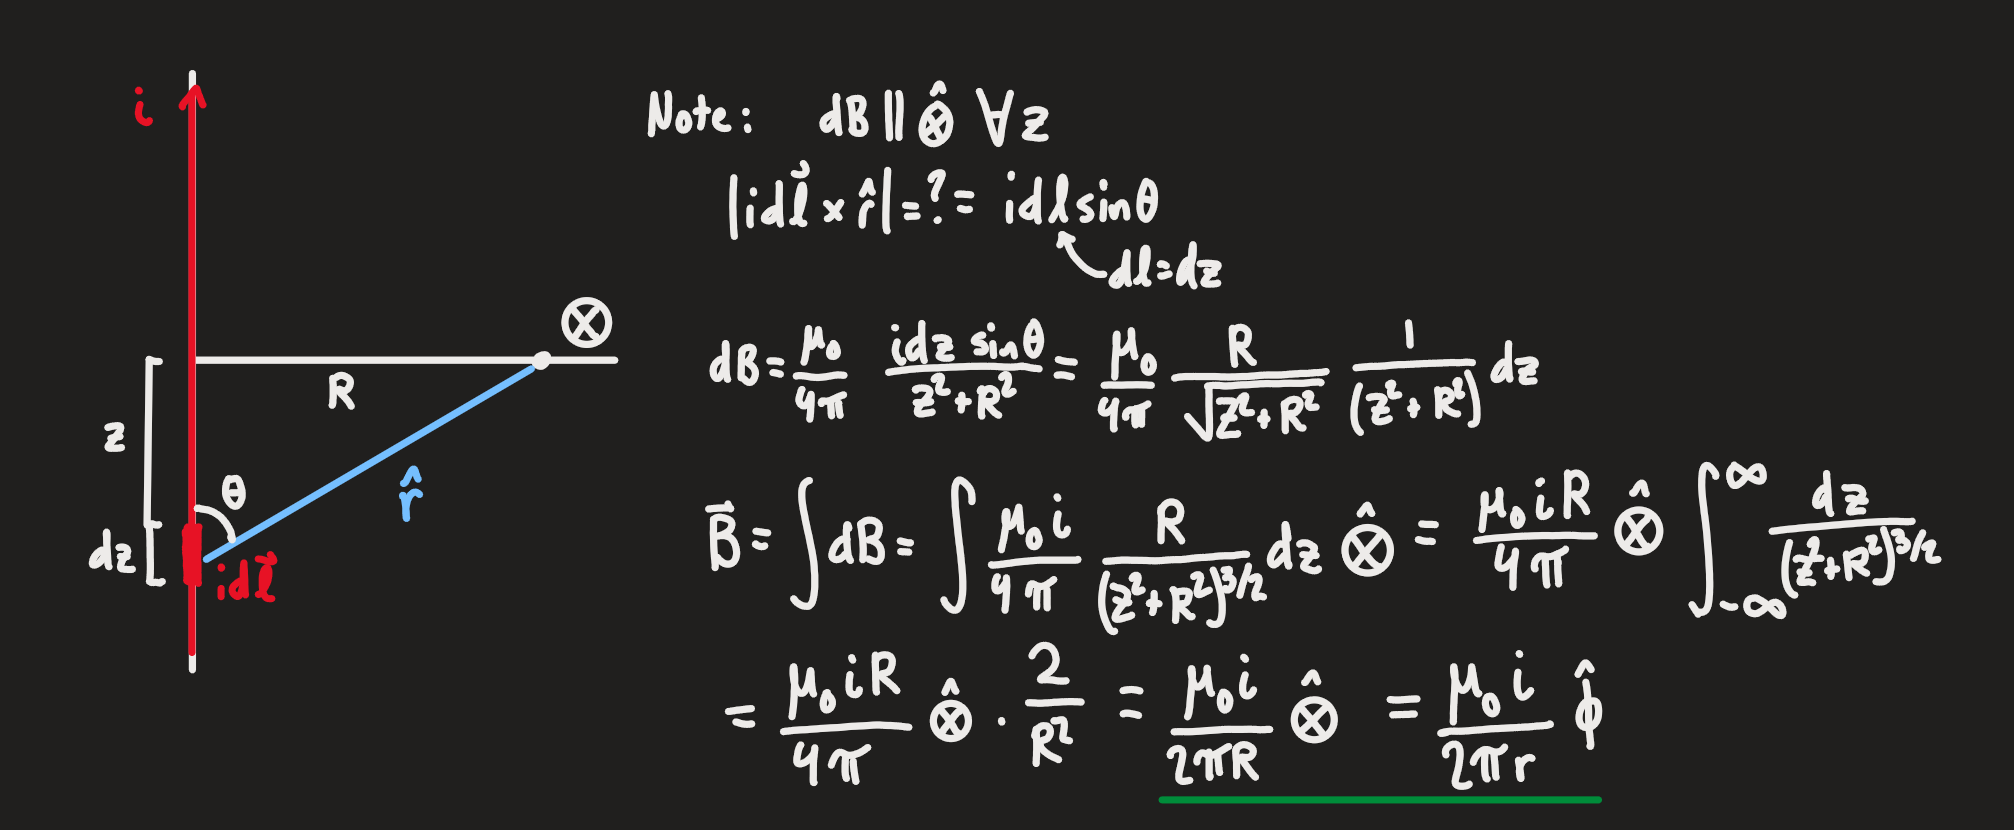 i
R
z
θ
r̂
dz
idl⃗
Note: dB ∥ ⊗̂ ∀ z
|idl⃗ × r̂| = ? = idl sinθ
dl = dz
dB = μ₀/4π idz sinθ/z²+R² = μ₀/4π R/√z²+R² 1/(z²+R²) dz
B⃗ = ∫dB = ∫ μ₀i/4π R/(z²+R²)^3/2 dz ⊗̂ = μ₀iR/4π ⊗̂ ∫_-∞^∞ dz/(z²+R²)^3/2
= μ₀iR/4π ⊗̂ · 2/R² = μ₀i/2πR ⊗̂ = μ₀i/2πr ϕ̂